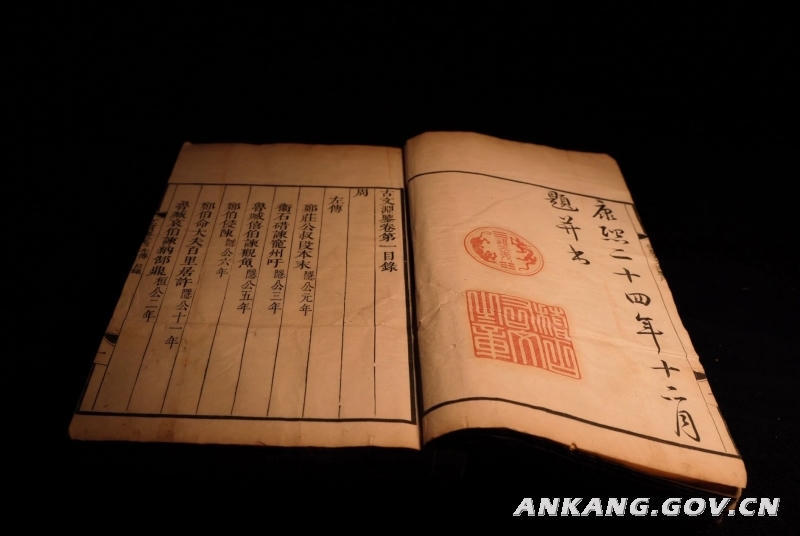 康熙二十四年十二月
題并書
稽古右文之章
古文淵鑒卷第一目錄
周
左傳
鄭莊公叔段本末 隱公元年
衞石碏諫寵州吁 隱公三年
魯臧僖伯諫觀魚 隱公五年
鄭伯侵陳 隱公六年
鄭伯命大夫百里居許 隱公十一年
魯臧哀伯諫納郜鼎 桓公二年
ANKANG.GOV.CN